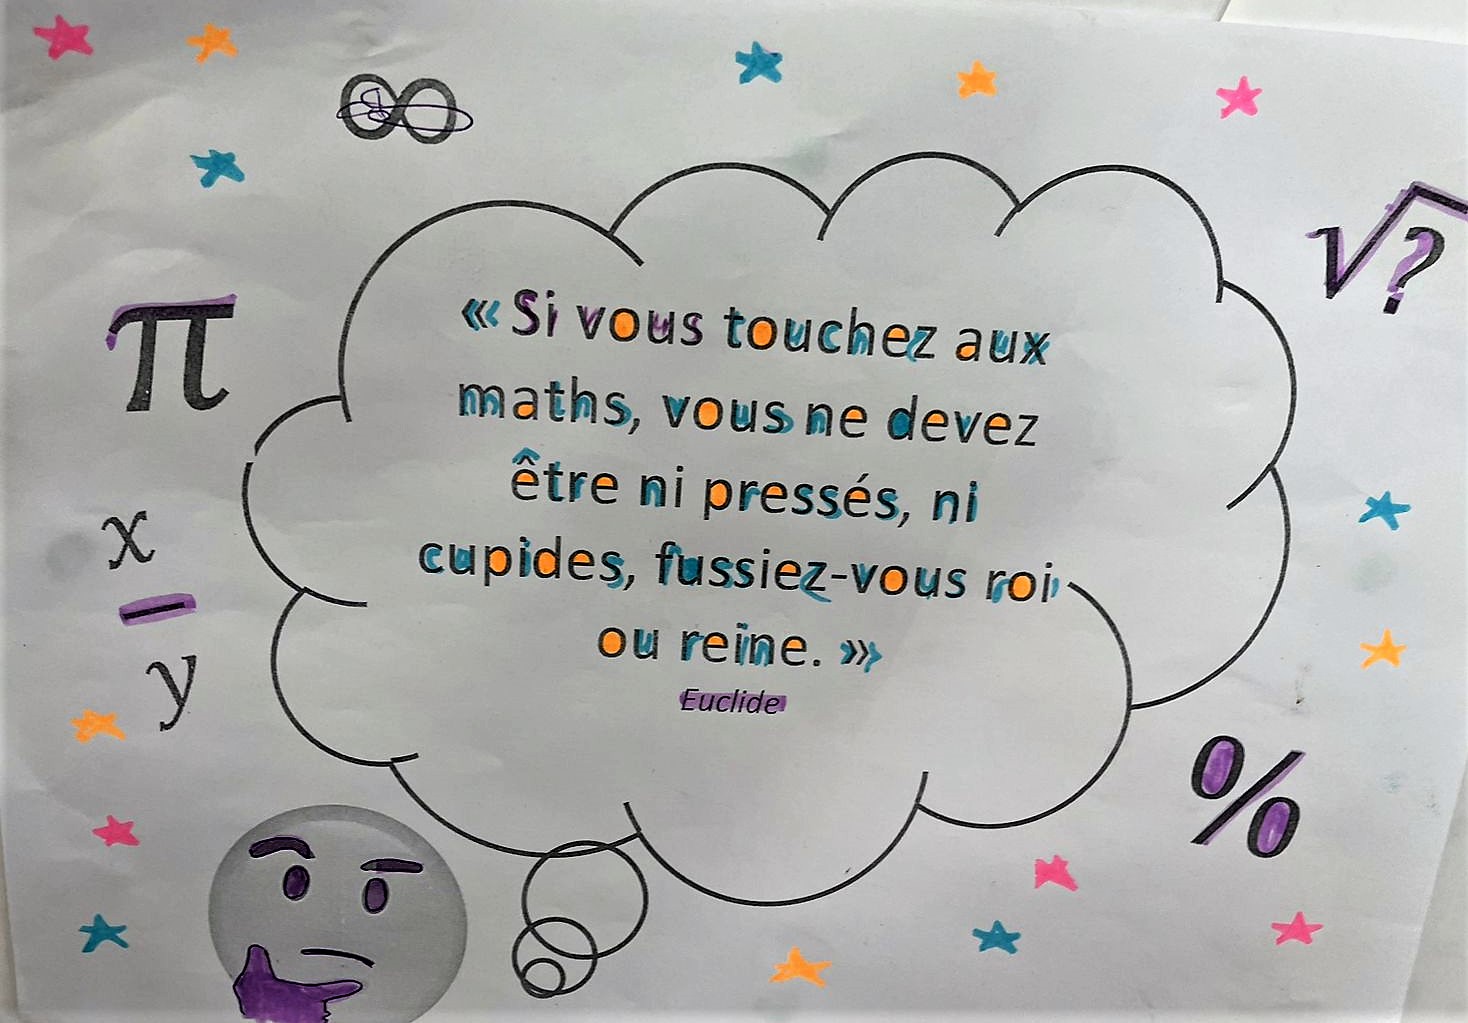 ∞
√?
π
« Si vous touchez aux
maths, vous ne devez
être ni pressés, ni
cupides, fussiez-vous roi
ou reine. »
Euclide
x
—
y
%